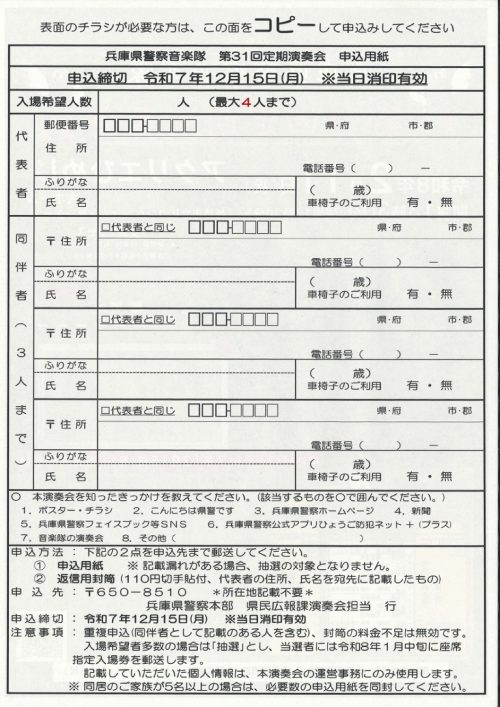 表面のチラシが必要な方は、この面をコピーして申込みしてください
兵庫県警察音楽隊 第31回定期演奏会 申込用紙
申込締切 令和7年12月15日(月) ※当日消印有効
入場希望人数 人 (最大4人まで)
代表者
郵便番号 □□□-□□□□ 県・府 市・郡
住所
電話番号( ) ー
ふりがな ( 歳)
氏名 車椅子のご利用 有・無
同伴者(3人まで)
〒住所 □代表者と同じ □□□-□□□□ 県・府 市・郡
電話番号( ) ー
ふりがな ( 歳)
氏名 車椅子のご利用 有・無
〒住所 □代表者と同じ □□□-□□□□ 県・府 市・郡
電話番号( ) ー
ふりがな ( 歳)
氏名 車椅子のご利用 有・無
〒住所 □代表者と同じ □□□-□□□□ 県・府 市・郡
電話番号( ) ー
ふりがな ( 歳)
氏名 車椅子のご利用 有・無
○ 本演奏会を知ったきっかけを教えてください。(該当するものを○で囲んでください。)
1、ポスター・チラシ 2、こんにちは県警です 3、兵庫県警察ホームページ 4、新聞
5、兵庫県警察フェイスブック等SNS 6、兵庫県警察公式アプリひょうご防犯ネット+(プラス)
7、音楽隊の演奏会 8、その他( )
申込方法 : 下記の2点を申込先まで郵送してください。
① 申込用紙 ※ 記載漏れがある場合、抽選の対象となりません。
② 返信用封筒(110円切手貼付、代表者の住所、氏名を宛先に記載したもの)
申込先 : 〒650-8510 *所在地記載不要*
兵庫県警察本部 県民広報課演奏会担当 行
申込締切 : 令和7年12月15日(月) ※当日消印有効
注意事項 : 重複申込(同伴者として記載のある人を含む)、封筒の料金不足は無効です。
入場希望者多数の場合は「抽選」とし、当選者には令和8年1月中旬に座席
指定入場券を郵送します。
記載していただいた個人情報は、本演奏会の運営事務にのみ使用します。
※ 同居のご家族が5名以上の場合は、必要数の申込用紙を同封してください。